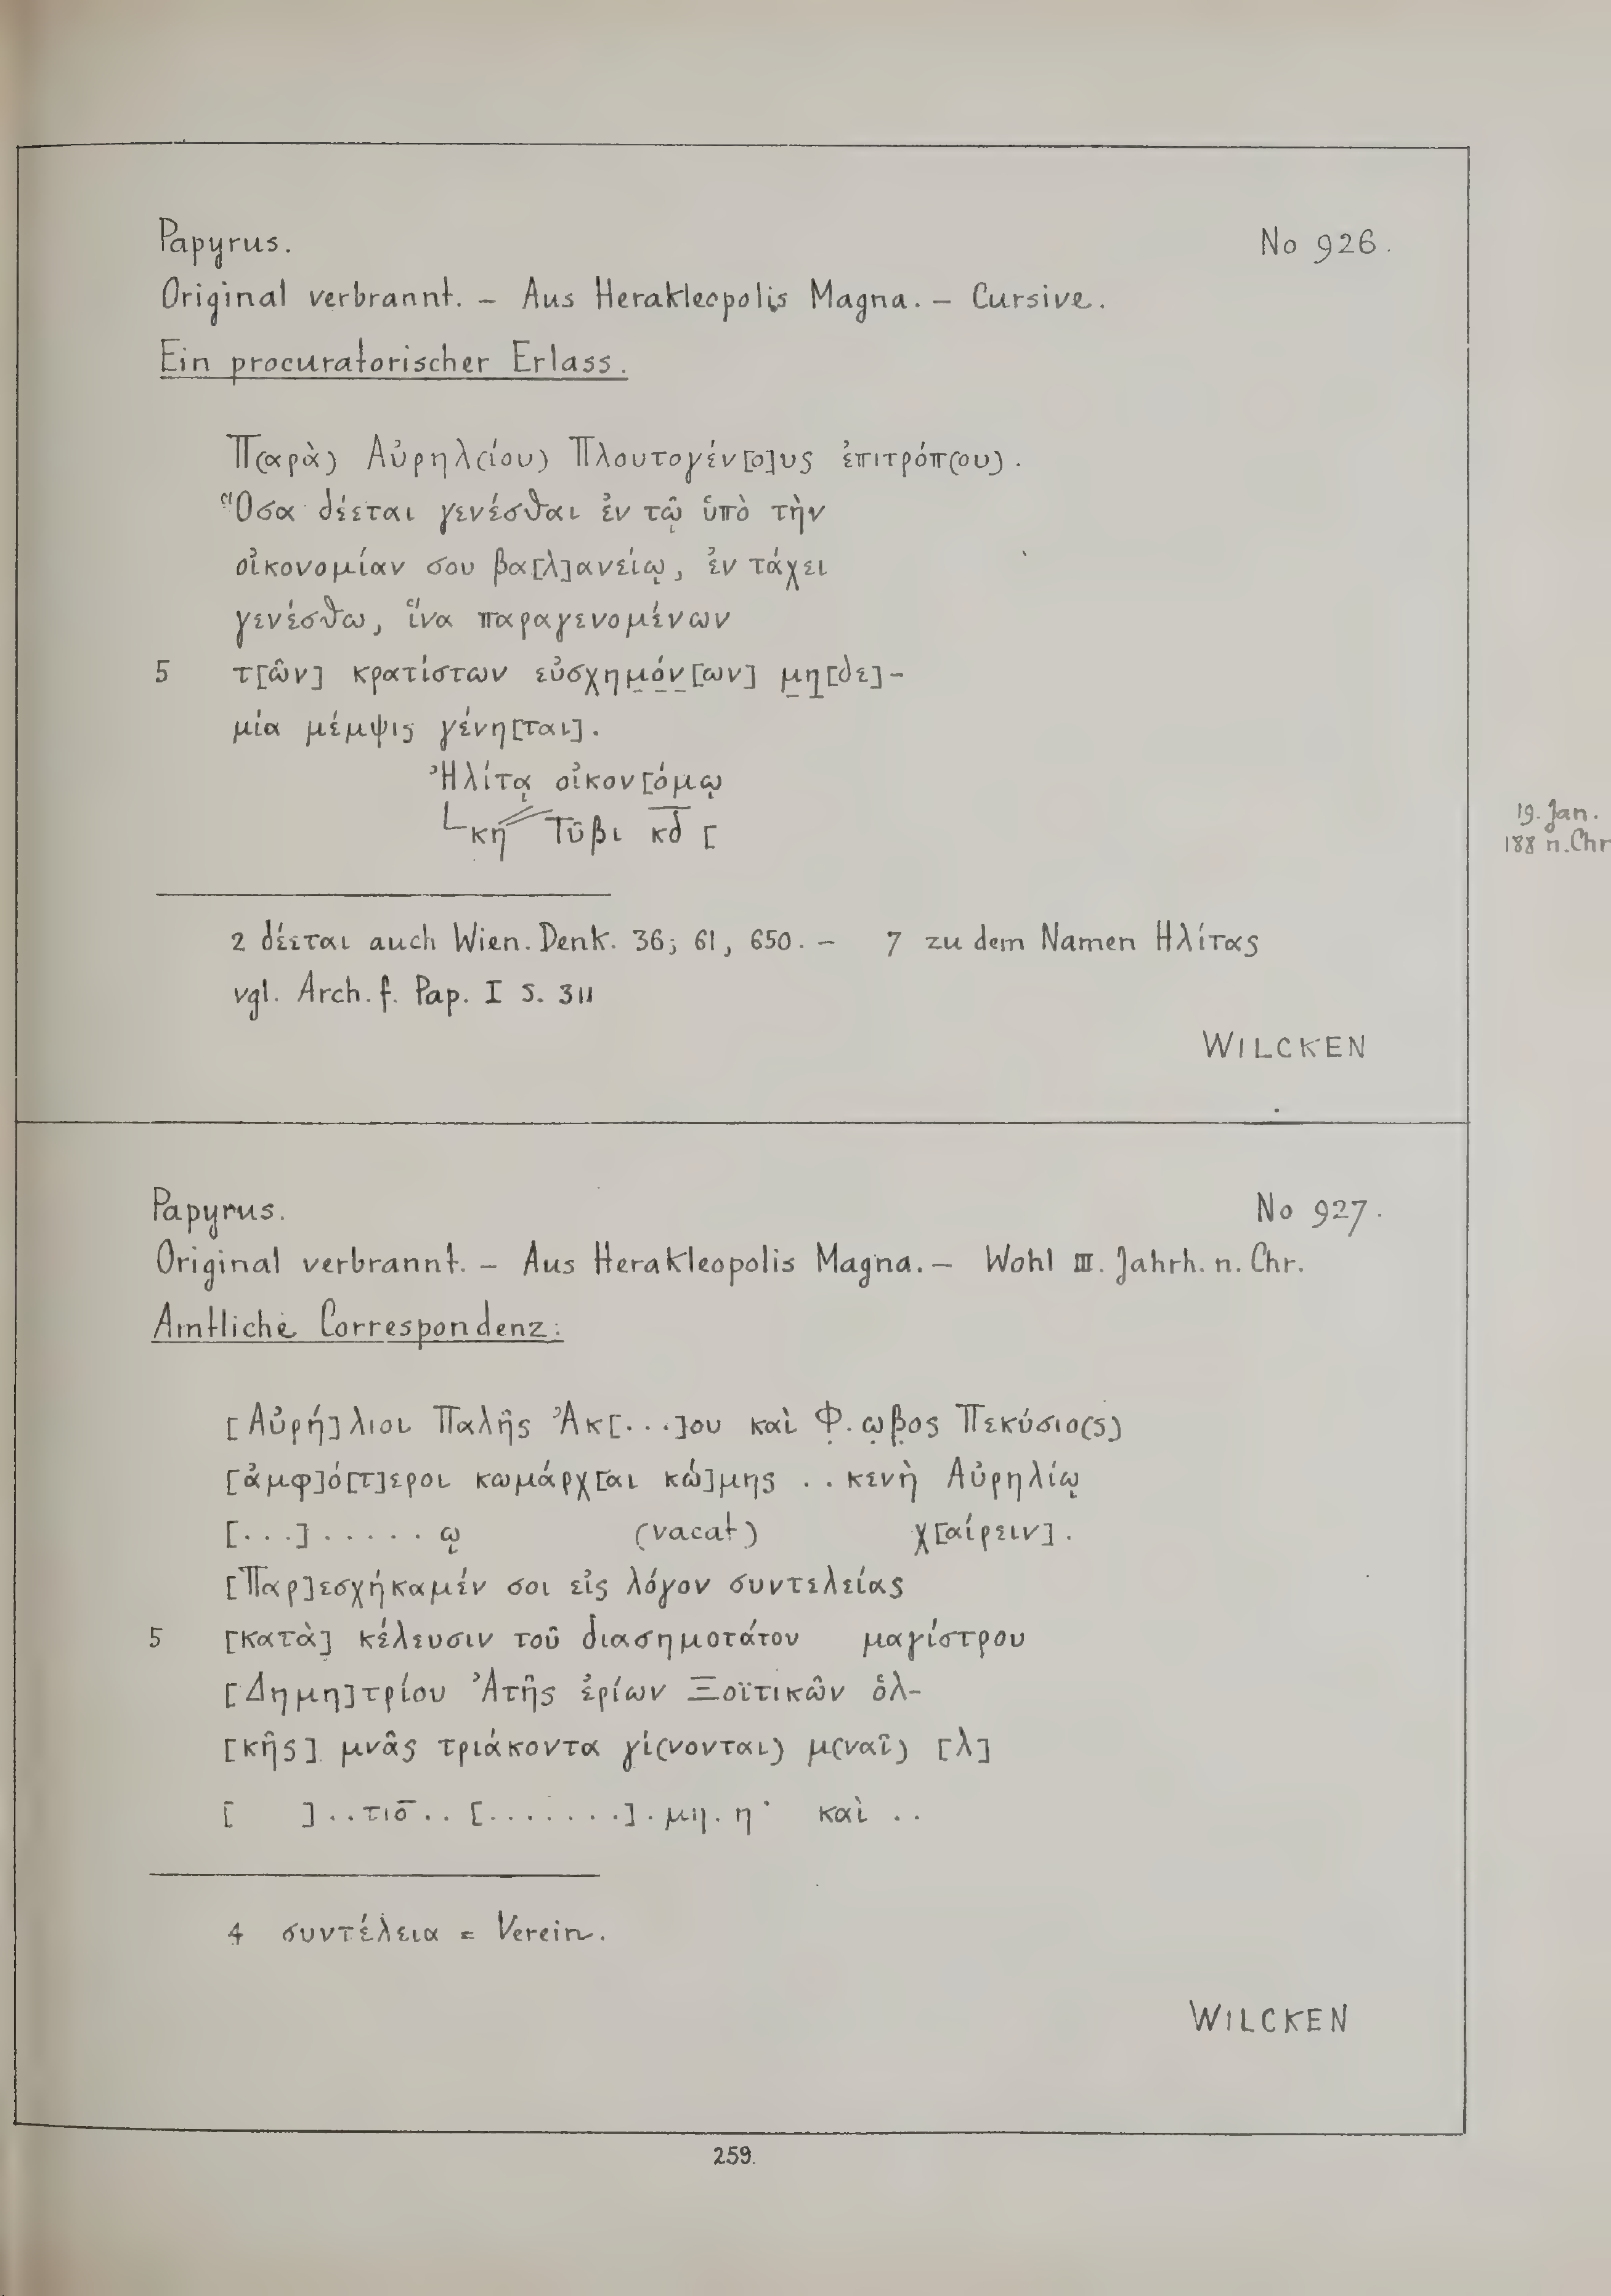 Papyrus. No 926.
Original verbrannt. – Aus Herakleopolis Magna. – Cursive.
Ein procuratorischer Erlass.
Π(αρὰ) Αὐρηλ(ίου) Πλουτογέν[ο]υς ἐπιτρόπ(ου).
Ὅσα δέεται γενέσθαι ἐν τῷ ὑπὸ τὴν
οἰκονομίαν σου βα[λ]ανείῳ, ἐν τάχει
γενέσθω, ἵνα παραγενομένων
5 τ[ῶν] κρατίστων εὐσχημόν[ων] μη[δε]-
μία μέμψις γένη[ται].
Ἠλίτᾳ οἰκον[όμῳ
∟κη// Τῦβι κ̅δ̅ [
19. Jan.
188 n. Chr
2 δέεται auch Wien. Denk. 36; 61, 650. – 7 zu dem Namen Ηλίτας
vgl. Arch. f. Pap. I S. 311
WILCKEN
Papyrus. No 927.
Original verbrannt. – Aus Herakleopolis Magna. – Wohl III. Jahrh. n. Chr.
Amtliche Correspondenz.
[Αὐρή]λιοι Παλῆς Ἀκ[...]ου καὶ Φ̣.ω̣β̣ος Πεκύσιο(ς)
[ἀμφ]ό[τ]εροι κωμάρχ[αι κώ]μης ..κενὴ Αὐρηλίῳ
[...].....ῳ (vacat) χ[αίρειν].
[Παρ]εσχήκαμέν σοι εἰς λόγον συντελείας
5 [κατὰ] κέλευσιν τοῦ διασημοτάτου μαγίστρου
[Δημη]τρίου Ἀτῆς ἐρίων Ξοϊτικῶν ὁλ-
[κῆς] μνᾶς τριάκοντα γί(νονται) μ(ναῖ) [λ]
[ ]..τιο̅..[.......].μη.η· καὶ ..
4 συντέλεια = Verein.
WILCKEN
259.